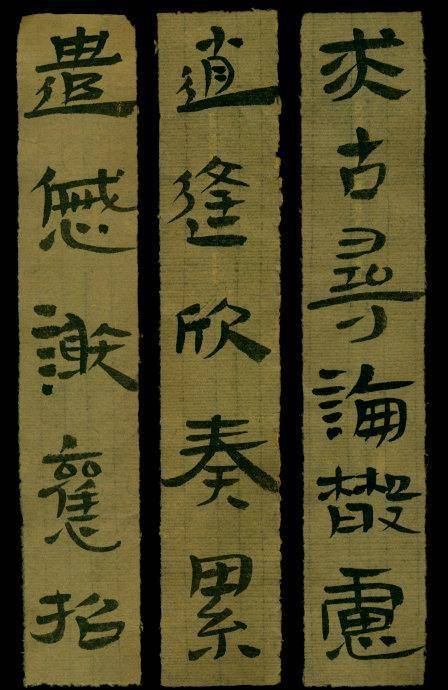 求古尋論散慮
逍遙欣奏累
遣慼謝歡招